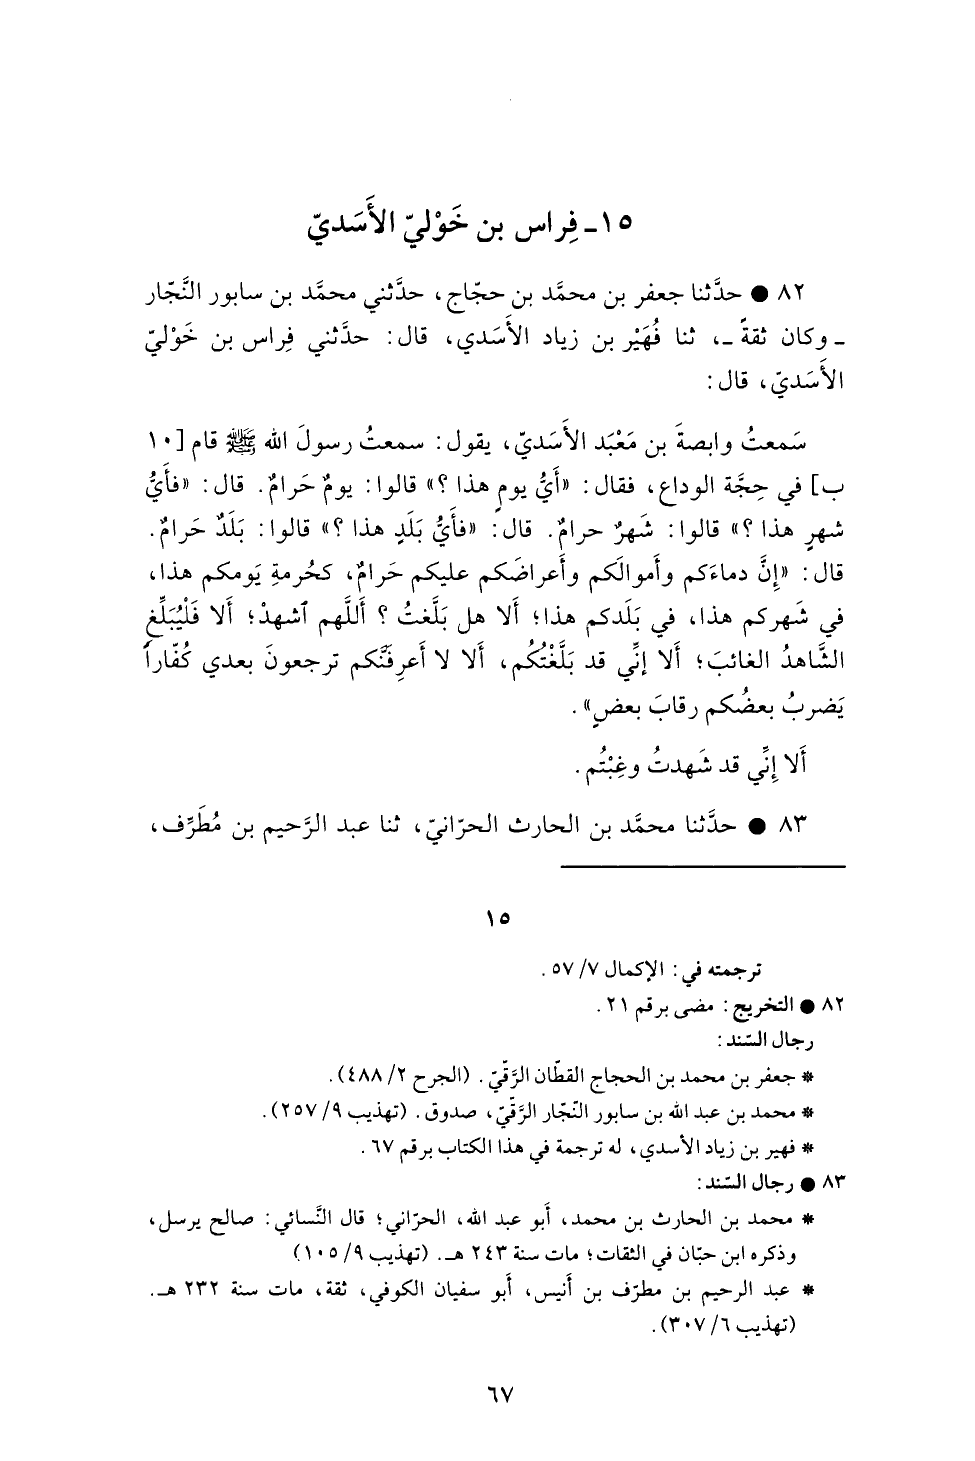 ١٥ ـ فِراس بن خَوْليّ الأَسَديّ
٨٢ ● حدَّثنا جعفر بن محمَّد بن حجّاج، حدَّثني محمَّد بن سابور النَّجّار
ـ وكان ثقةً ـ، ثنا فُهَيْر بن زياد الأَسَدي، قال: حدَّثني فِراس بن خَوْليّ
الأَسَديّ، قال:
سَمعتُ وابصةَ بن مَعْبَد الأَسَديّ، يقول: سمعتُ رسولَ الله ﷺ قام [١٠
ب] في حِجَّة الوداع، فقال: «أَيُّ يومٍ هذا ؟» قالوا: يومٌ حَرامٌ. قال: «فأَيُّ
شهرٍ هذا ؟» قالوا: شَهرٌ حرامٌ. قال: «فأَيُّ بَلَدٍ هذا ؟» قالوا: بَلَدٌ حَرامٌ.
قال: «إِنَّ دماءَكم وأَموالَكم وأَعراضَكم عليكم حَرامٌ، كحُرمةِ يَومكم هذا،
في شَهركم هذا، في بَلَدكم هذا؛ أَلا هل بَلَّغتُ ؟ أَللَّهم ٱشهدْ؛ أَلا فَلْيُبَلِّغِ
الشَّاهدُ الغائبَ؛ أَلا إِنِّي قد بَلَّغْتُكُم، أَلا لا أَعرِفَنَّكم ترجعونَ بعدي كُفّاراً
يَضربُ بعضُكم رقابَ بعضٍ».
أَلا إِنِّي قد شَهدتُ وغِبْتُم.
٨٣ ● حدَّثنا محمَّد بن الحارث الحرّانيّ، ثنا عبد الرَّحيم بن مُطَرِّف،
١٥
ترجمته في: الإكمال ٧/ ٥٧.
٨٢ ● التخريج: مضى برقم ٢١.
رجال السّند:
* جعفر بن محمد بن الحجاج القطّان الرَّقّيّ. (الجرح ٢/ ٤٨٨).
* محمد بن عبد الله بن سابور النّجّار الرَّقّيّ، صدوق. (تهذيب ٩/ ٢٥٧).
* فهير بن زياد الأسدي، له ترجمة في هذا الكتاب برقم ٦٧.
٨٣ ● رجال السّند:
* محمد بن الحارث بن محمد، أبو عبد الله، الحرّاني؛ قال النَّسائي: صالح يرسل،
وذكره ابن حبّان في الثقات؛ مات سنة ٢٤٣ هـ. (تهذيب ٩/ ١٠٥)
* عبد الرحيم بن مطرّف بن أَنيس، أَبو سفيان الكوفي، ثقة، مات سنة ٢٣٢ هـ.
(تهذيب ٦/ ٣٠٧).
٦٧